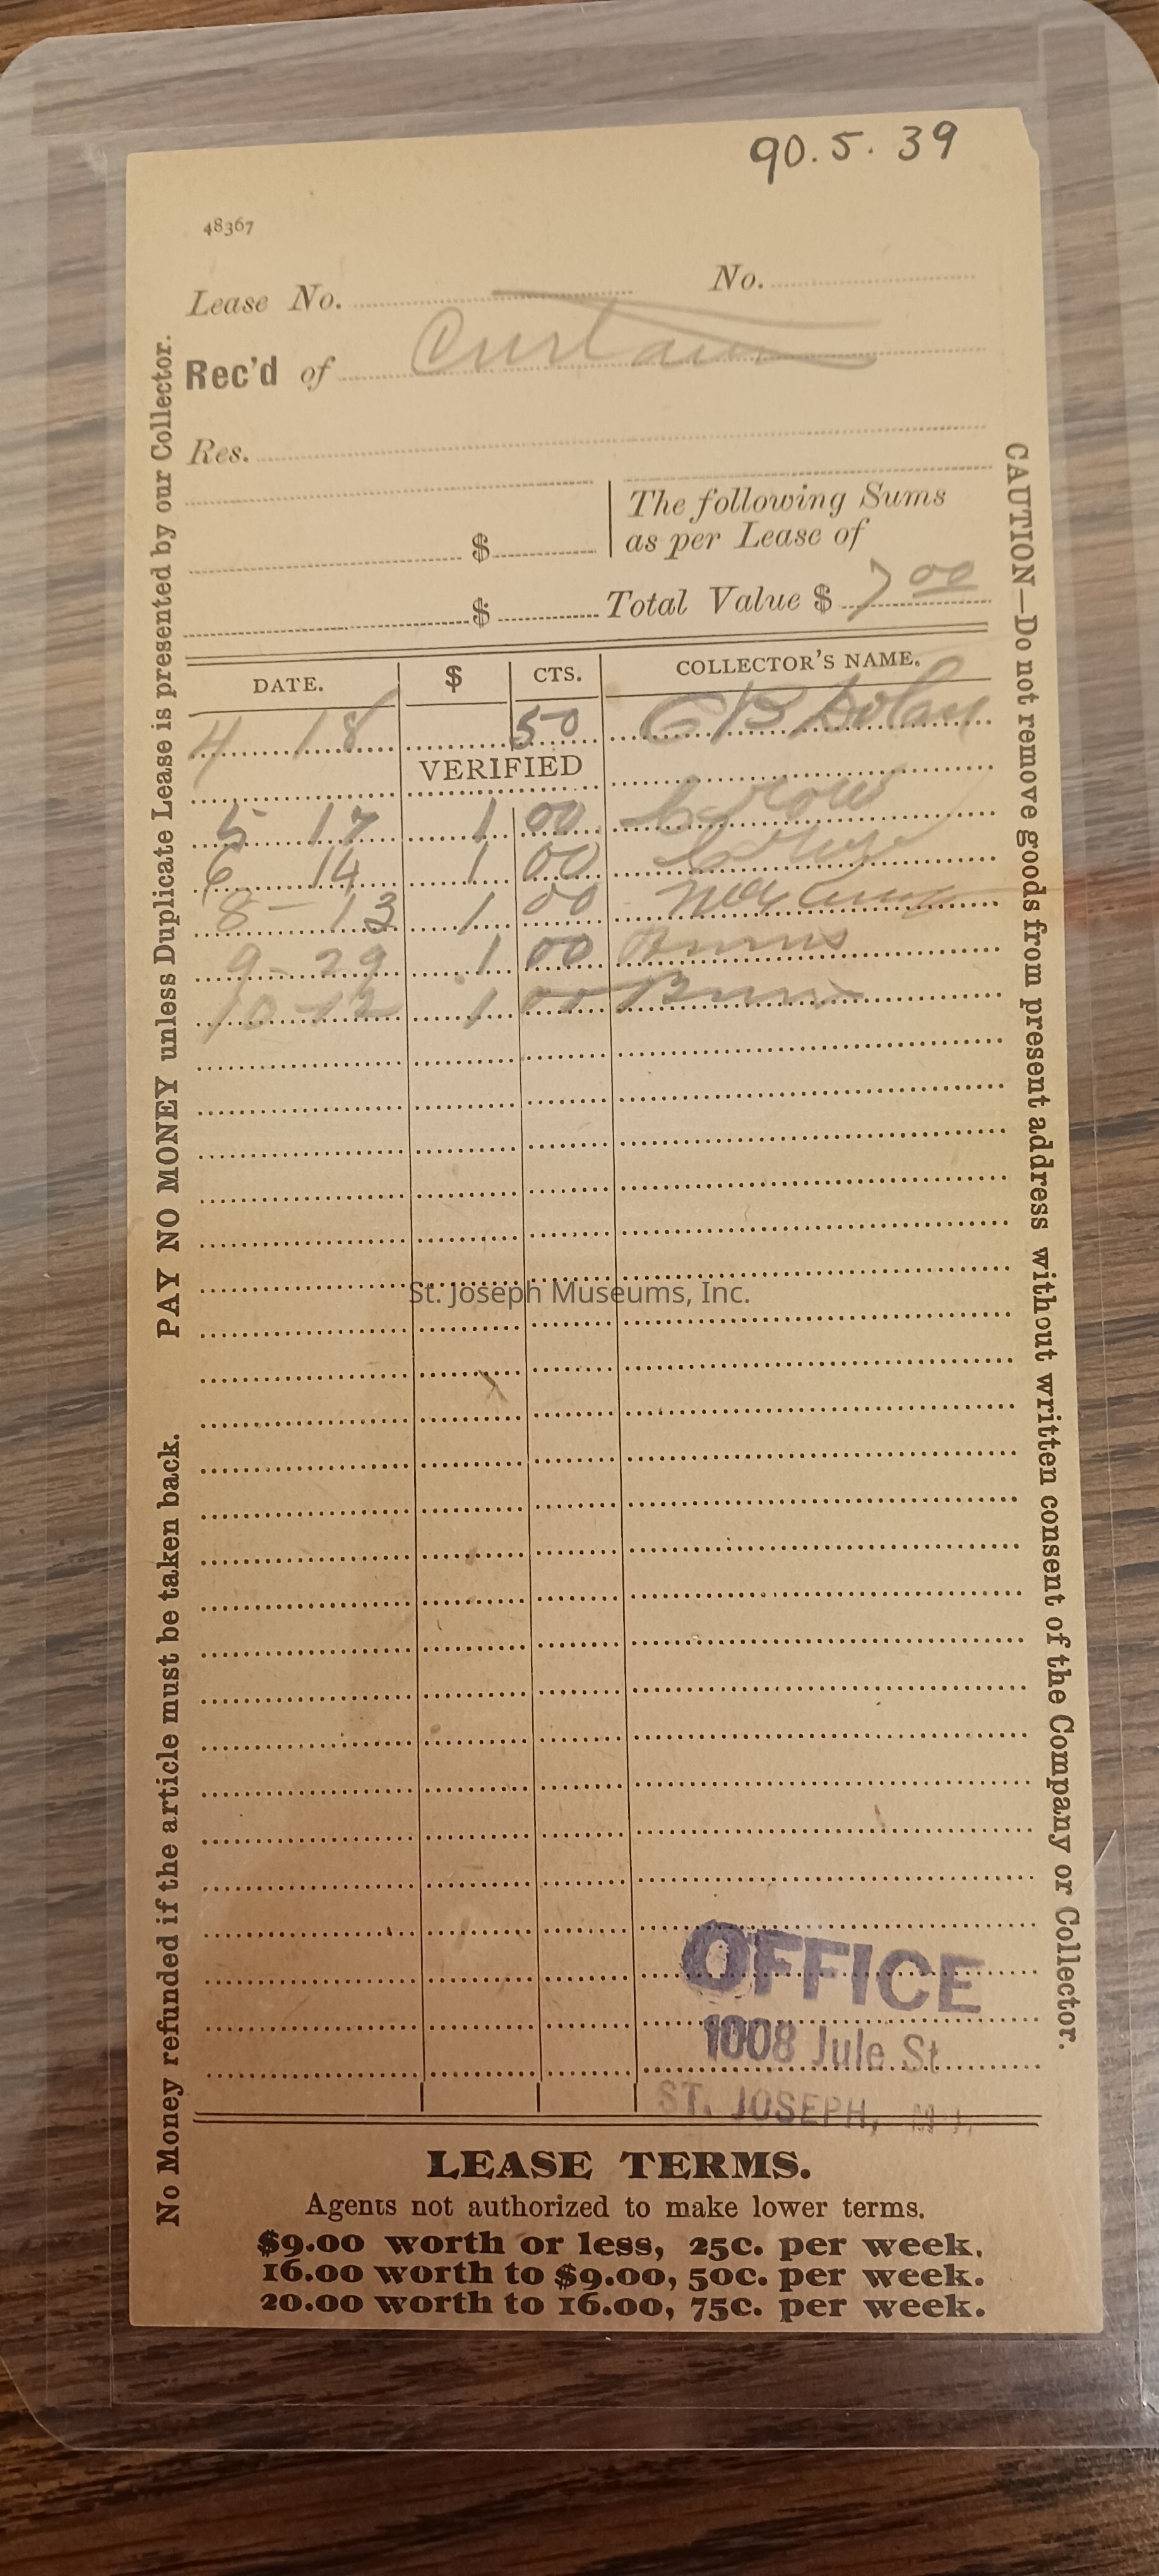 90.5.39
48367
Lease No. No.
Rec'd of Curtain
Res.
$ The following Sums as per Lease of
$ Total Value $ 7 00
DATE. $ CTS. COLLECTOR'S NAME.
4 18 50 Dolan
VERIFIED
5 17 1 00
6 14 1 00
8-13 1 00
9-29 1 00 Burns
10-12 1 00 Burns
St. Joseph Museums, Inc.
OFFICE
1008 Jule St
ST. JOSEPH,
LEASE TERMS.
Agents not authorized to make lower terms.
$9.00 worth or less, 25c. per week.
16.00 worth to $9.00, 50c. per week.
20.00 worth to 16.00, 75c. per week.
No Money refunded if the article must be taken back. PAY NO MONEY unless Duplicate Lease is presented by our Collector.
CAUTION—Do not remove goods from present address without written consent of the Company or Collector.